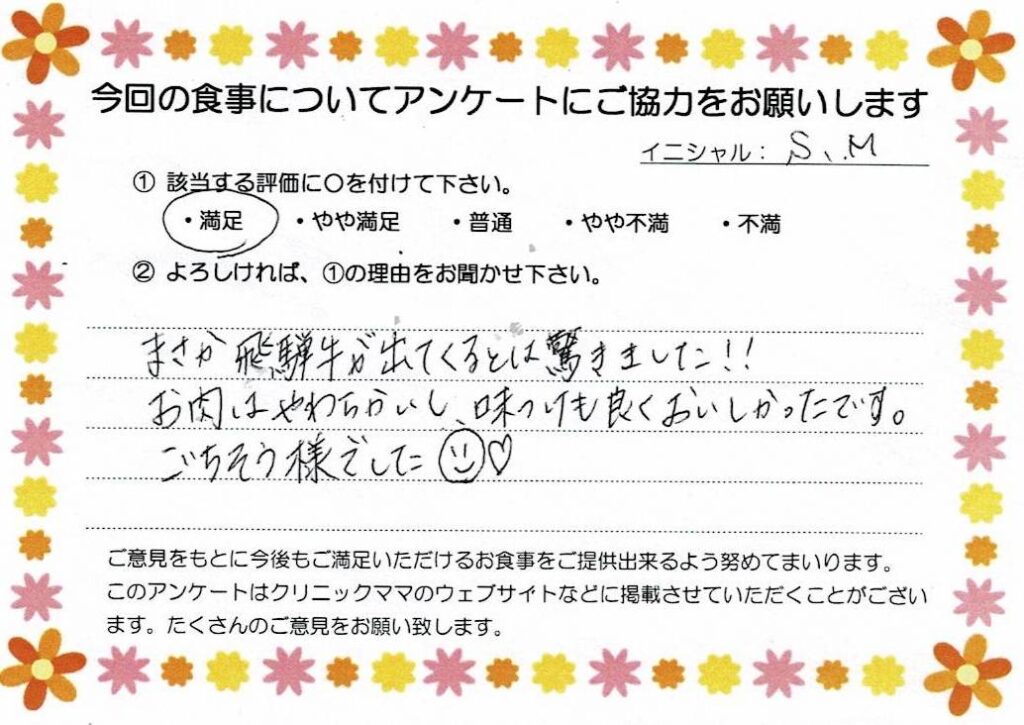 今回の食事についてアンケートにご協力をお願いします
イニシャル： S、M
① 該当する評価に〇を付けて下さい。
・満足 ・やや満足 ・普通 ・やや不満 ・不満
② よろしければ、①の理由をお聞かせ下さい。
まさか飛騨牛が出てくるとは驚きました!!
お肉はやわらかいし、味つけも良くおいしかったです。
ごちそう様でした
ご意見をもとに今後もご満足いただけるお食事をご提供出来るよう努めてまいります。
このアンケートはクリニックママのウェブサイトなどに掲載させていただくことがござい
ます。たくさんのご意見をお願い致します。